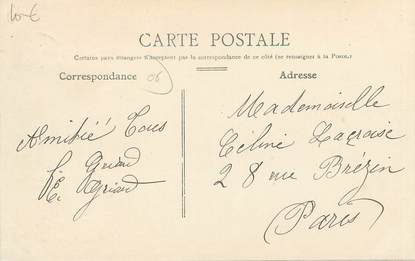 10 €
CARTE POSTALE
Certains pays étrangers n'acceptent pas la correspondance de ce côté (se renseigner à la Poste).
Correspondance
06
Adresse
Amitié Tous
Giraud
Giraud
Mademoiselle
Céline Lacroise
28 rue Brézin
Paris